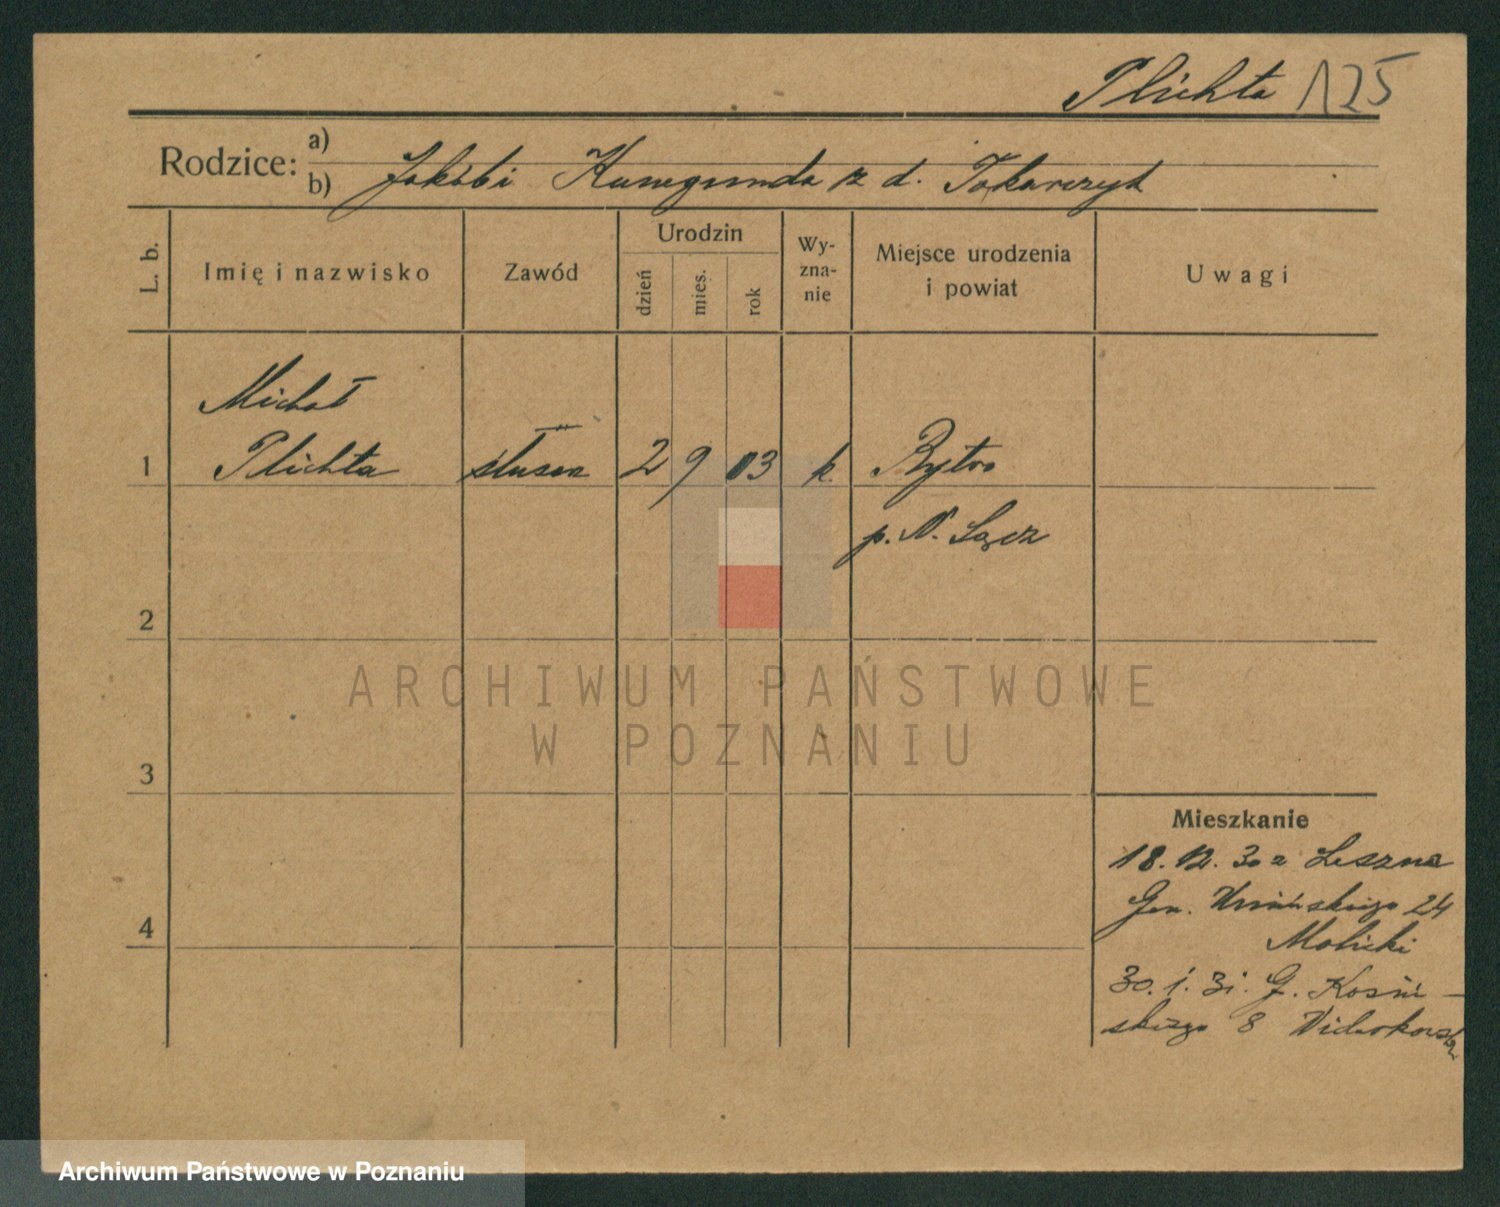 Plichta 125
Rodzice: a)
b) Jakób i Kunegunda z d. Tokarczyk
L. b. Imię i nazwisko Zawód Urodzin dzień mies. rok Wy-zna-nie Miejsce urodzenia i powiat Uwagi
Michał
1 Plichta ślusarz 2 9 03 k. Bytro
p. N. Sącz
2
3
4
Mieszkanie
18. 12. 30 z Leszna
Gen. Umińskiego 24
Molicki
30. 1. 31. G. Kosiń-
skiego 8
ARCHIWUM PAŃSTWOWE
W POZNANIU
Archiwum Państwowe w Poznaniu